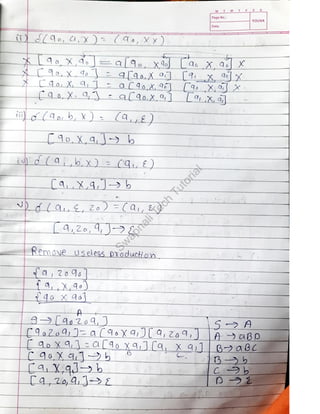 M T W T F S S
Page No.:
Date:
YOUVA
ii) δ(q0, a, x) = (q0, xx)
x [q0, x, q0] = a[q0, x, q0] [q0, x, q0] x
x [q0, x, q0] = a[q0, x, q1] [q1, x, q0] x
x [q0, x, q1] = a[q0, x, q0] [q0, x, q1] x
[q0, x, q1] = a[q0, x, q1] [q1, x, q1]
iii) δ(q0, b, x) = (q1, ε)
[q0, x, q1] → b
iv) δ(q1, b, x) = (q1, ε)
[q1, x, q1] → b
v) δ(q1, ε, z0) = (q1, ε)
[q1, z0, q1] → ε
Swapnali Tech Tutorial
Remove useless production
[q1 z0 q0]
[q1, x, q0]
[q0 x q0]
A
S → [q0 z0 q1]
[q0 z0 q1] = a [q0 x q1] [q1 z0 q1]
[q0 x q1] = a [q0 x q1] [q1 x q1]
B C
[q0 x q1] → b
[q1 x q1] → b
[q1 z0 q1] → ε
S → A
A → aBD
B → aBC
B → b
C → b
D → ε